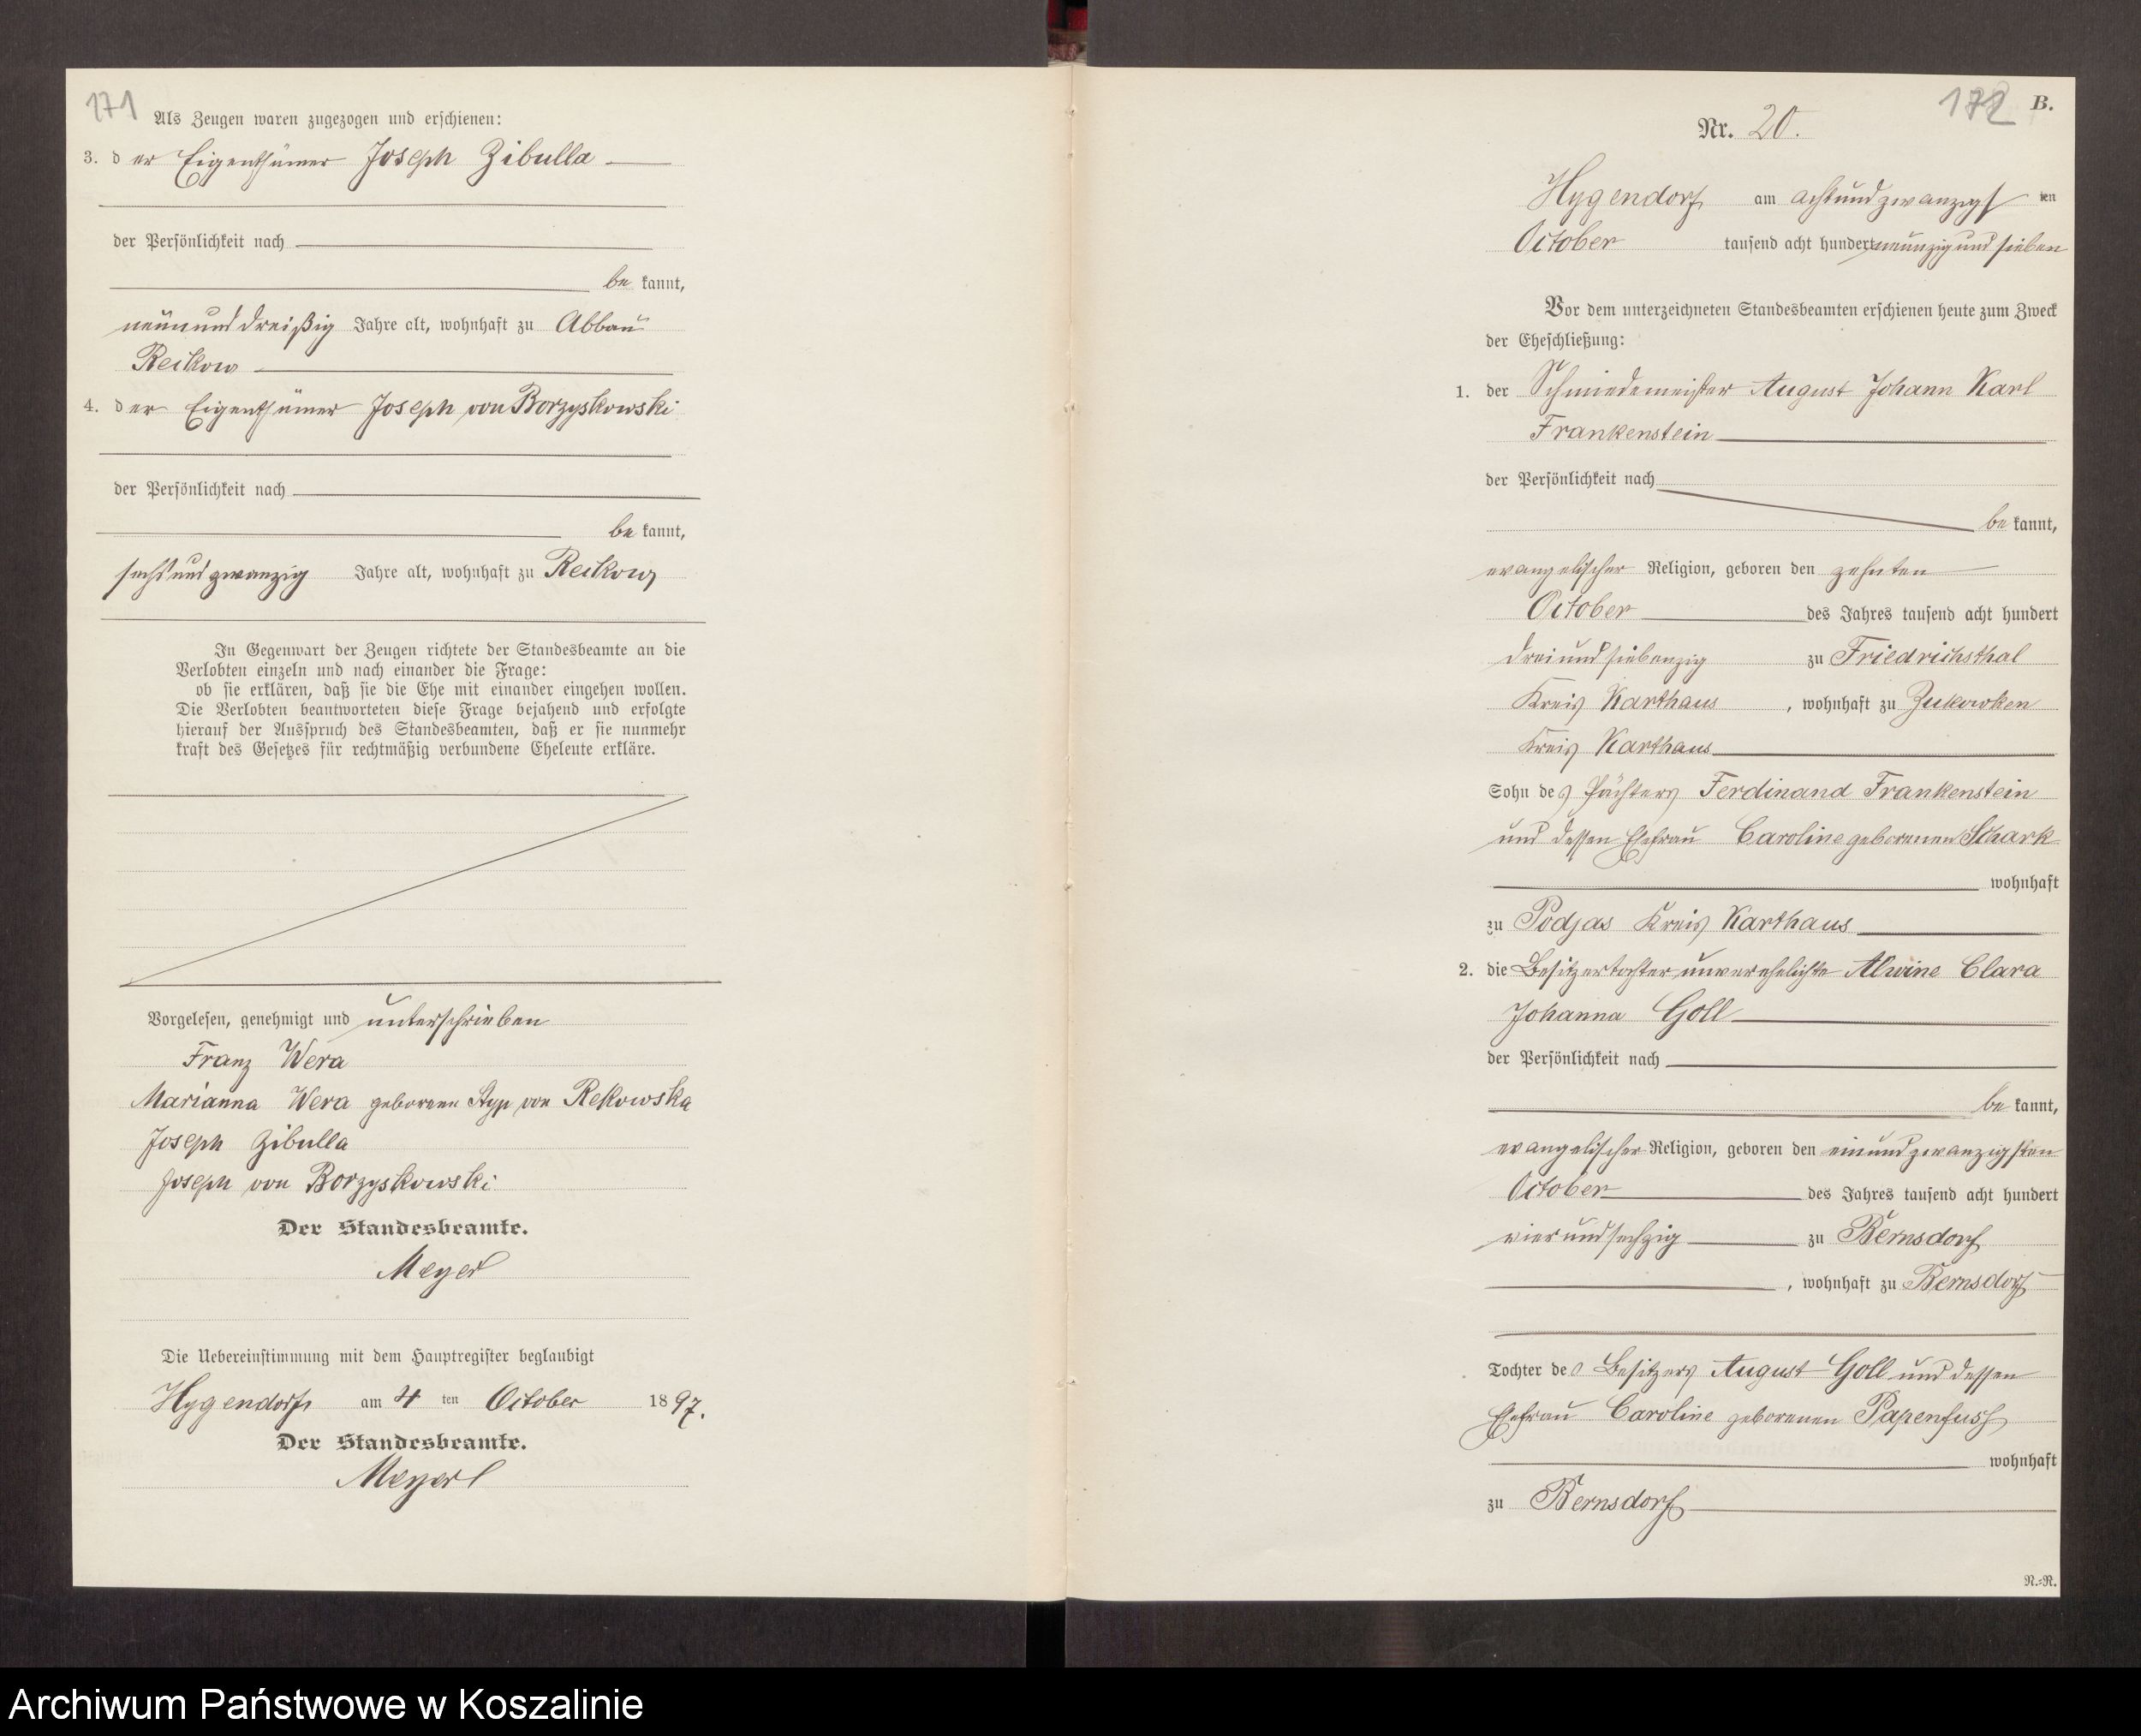 171
Als Zeugen waren zugezogen und erschienen:
3. d er Eigenthümer Joseph Zibulla
der Persönlichkeit nach
be kannt,
neunund dreißig Jahre alt, wohnhaft zu Abbau
Reckow
4. d er Eigenthümer Joseph von Borzyskowski
der Persönlichkeit nach
be kannt,
sechsundzwanzig Jahre alt, wohnhaft zu Reckow
In Gegenwart der Zeugen richtete der Standesbeamte an die
Verlobten einzeln und nach einander die Frage:
ob sie erklären, daß sie die Ehe mit einander eingehen wollen.
Die Verlobten beantworteten diese Frage bejahend und erfolgte
hierauf der Ausspruch des Standesbeamten, daß er sie nunmehr
kraft des Gesetzes für rechtmäßig verbundene Eheleute erkläre.
Vorgelesen, genehmigt und unterschrieben
Franz Wera
Marianna Wera geborene Styp von Rekowska
Joseph Zibulla
Joseph von Borzyskowski
Der Standesbeamte.
Meyer
Die Uebereinstimmung mit dem Hauptregister beglaubigt
Hygendorf am 4 ten October 1897.
Der Standesbeamte.
Meyer
172 B.
Nr. 20.
Hygendorf am achtundzwanzigs ten
October tausend acht hundert neunzig und sieben
Vor dem unterzeichneten Standesbeamten erschienen heute zum Zweck
der Eheschließung:
1. der Schmiedemeister August Johann Karl
Frankenstein
der Persönlichkeit nach
be kannt,
evangelischer Religion, geboren den zehnten
October des Jahres tausend acht hundert
dreiundsiebenzig zu Friedrichsthal
Kreis Karthaus, wohnhaft zu Zukowken
Kreis Karthaus
Sohn des Pächters Ferdinand Frankenstein
und dessen Ehefrau Caroline geborenen Schark
wohnhaft
zu Podjas Kreis Karthaus
2. die Besitzertochter unverehelichte Alwine Clara
Johanna Goll
der Persönlichkeit nach
be kannt,
evangelischer Religion, geboren den einundzwanzigsten
October des Jahres tausend acht hundert
vierundsechzig zu Bernsdorf
, wohnhaft zu Bernsdorf
Tochter des Besitzers August Goll und dessen
Ehefrau Caroline geborenen Papenfuss
wohnhaft
zu Bernsdorf
R.=R.
Archiwum Państwowe w Koszalinie